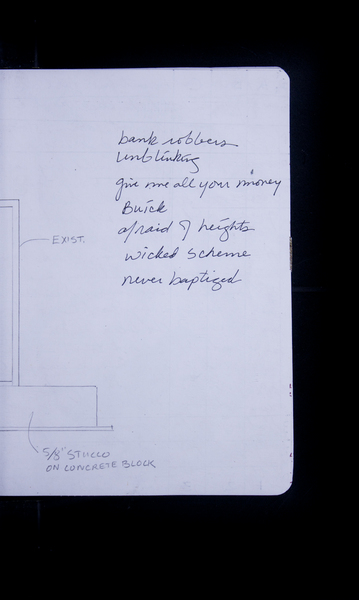 bank robbers
unblinking
give me all your money
Buick
afraid of heights
wicked scheme
never baptized
EXIST.
5/8" STUCCO
ON CONCRETE BLOCK